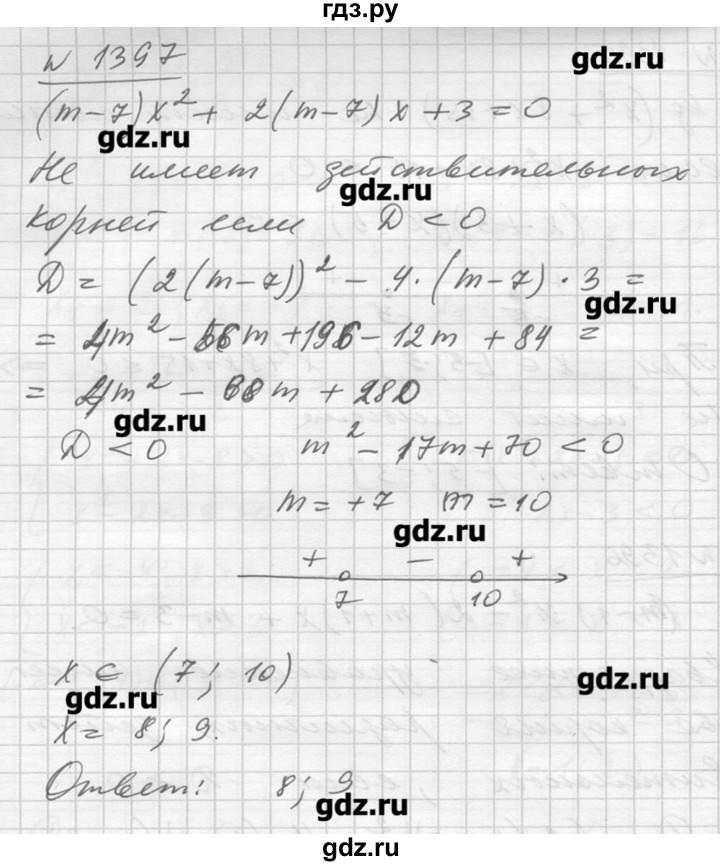 гдз.ру
N 1397
gdz.ru
(m-7)x² + 2(m-7)x + 3 = 0
gdz.ru
Не имеет действительных
gdz.ru
корней если D < 0
D = (2(m-7))² - 4·(m-7)·3 =
gdz.ru
= 4m² - 56m + 196 - 12m + 84 =
= 4m² - 68m + 280
gdz.ru
D < 0 m² - 17m + 70 < 0
m = +7 m = 10
gdz.ru
+ - +
7 10
x ∈ (7; 10)
gdz.ru
gdz.ru
x = 8; 9.
Ответ: 8; 9
gdz.ru
gdz.ru